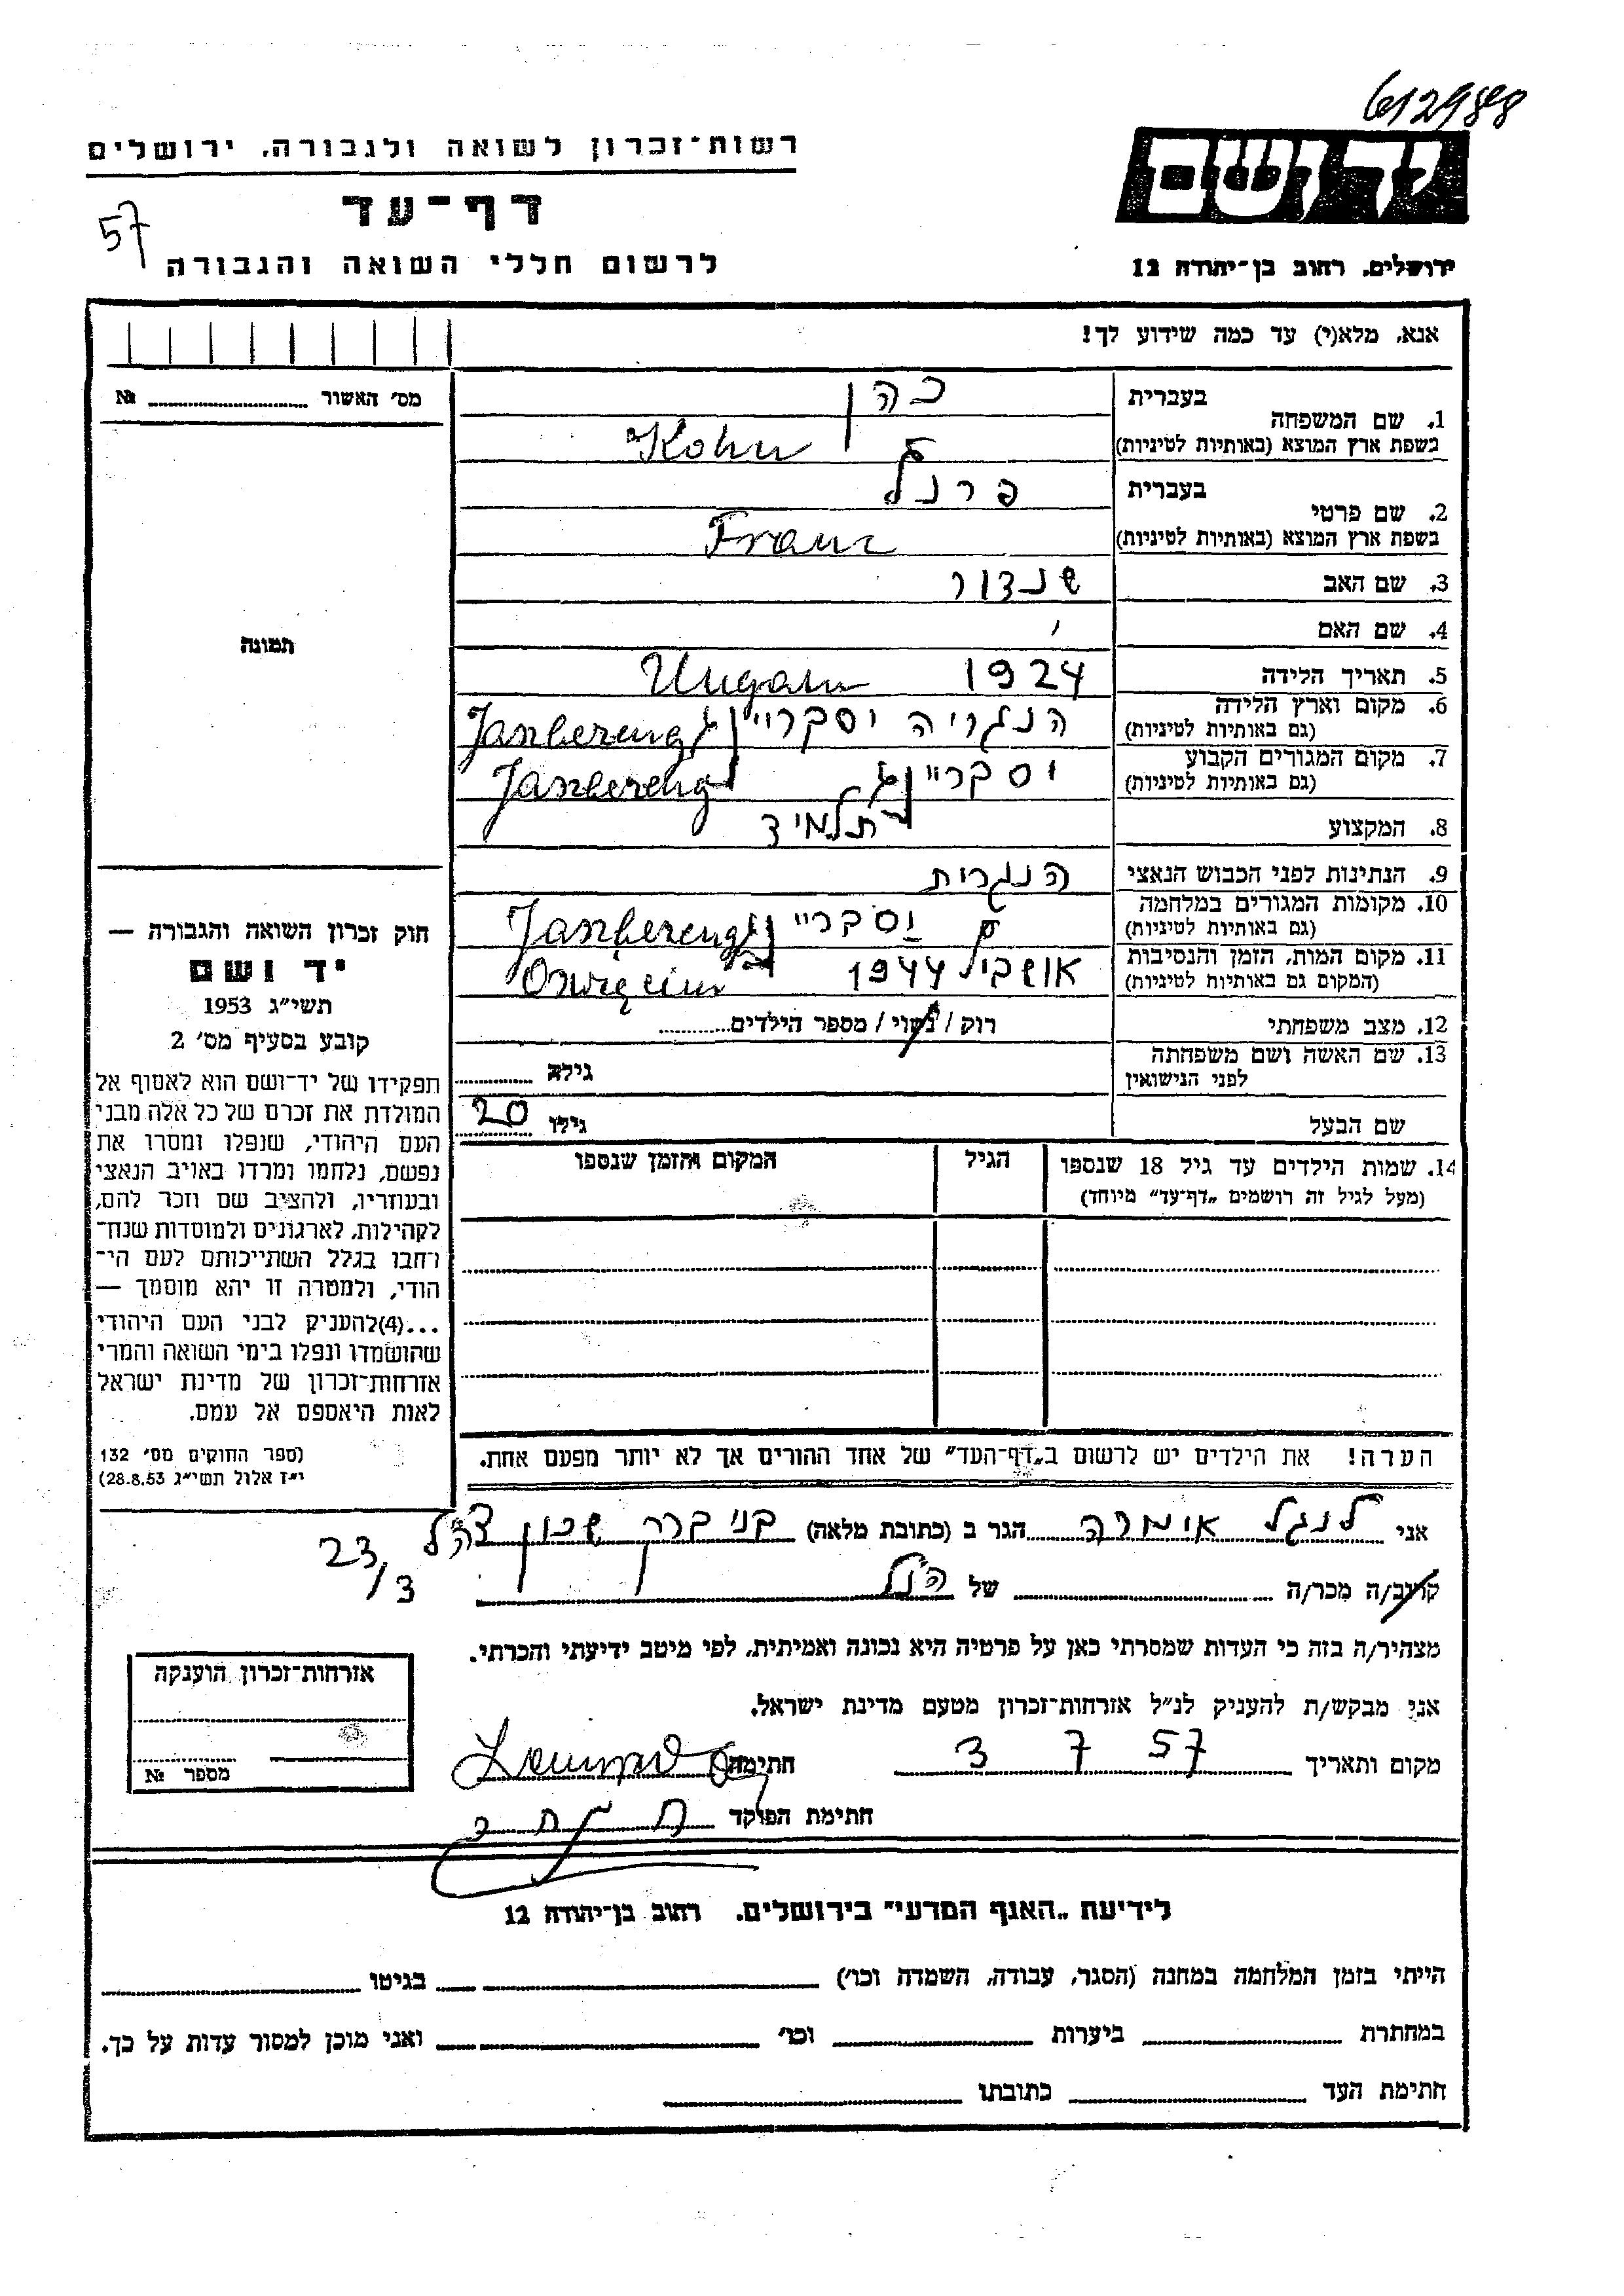 612988
רשות־זכרון לשואה ולגבורה, ירושלים
יד ושם
דף־עד
57
לרשום חללי השואה והגבורה
ירושלים, רחוב בן־יהודה 12
אנא, מלא(י) עד כמה שידוע לך!
מס׳ האשור № 
בעברית כהן
1. שם המשפחה
בשפת ארץ המוצא (באותיות לטיניות) Kohn
בעברית פרנץ
2. שם פרטי
בשפת ארץ המוצא (באותיות לטיניות) Franz
3. שם האב שנדור
4. שם האם
5. תאריך הלידה 1924 Ungarn
6. מקום וארץ הלידה הנגריה יסברינג Jasbereng
(גם באותיות לטיניות)
7. מקום המגורים הקבוע יסברינג Jasbereng
(גם באותיות לטיניות)
8. המקצוע תלמיד
9. הנתינות לפני הכבוש הנאצי הנגרית
10. מקומות המגורים במלחמה Jasbereng
(גם באותיות לטיניות)
11. מקום המות, הזמן והנסיבות 1944
(המקום גם באותיות לטיניות)
12. מצב משפחתי רוק / נשוי / מספר הילדים
13. שם האשה ושם משפחתה
לפני הנישואין גילה
שם הבעל גילו 20
14. שמות הילדים עד גיל 18 שנספו הגיל המקום והזמן שנספו
(מעל לגיל זה רושמים „דף־עד” מיוחד)
הערה! את הילדים יש לרשום ב„דף־העד” של אחד ההורים אך לא יותר מפעם אחת.
תמונה
חוק זכרון השואה והגבורה —
יד ושם
תשי״ג 1953
קובע בסעיף מס׳ 2
תפקידו של יד־ושם הוא לאסוף אל
המולדת את זכרם של כל אלה מבני
העם היהודי, שנפלו ומסרו את
נפשם, נלחמו ומרדו באויב הנאצי
ובעוזריו, ולהציב שם וזכר להם,
לקהילות, לארגונים ולמוסדות שנח־
רחבו בגלל השתייכותם לעם הי־
הודי, ולמטרה זו יהא מוסמך —
...(4)להעניק לבני העם היהודי
שהושמדו ונפלו בימי השואה והמרי
אזרחות־זכרון של מדינת ישראל
לאות היאספם אל עמם.
(ספר החוקים מס׳ 132
י״ז אלול תשי״ג 28.8.53)
אני הגר ב (כתובת מלאה) בני ברק שכון צה״ל
23/3
קרוב/ה מכר/ה של הנ״ל
מצהיר/ה בזה כי העדות שמסרתי כאן על פרטיה היא נכונה ואמיתית, לפי מיטב ידיעתי והכרתי.
אני מבקש/ת להעניק לנ״ל אזרחות־זכרון מטעם מדינת ישראל.
מקום ותאריך 3 7 57 חתימה
חתימת הפוקד
אזרחות־זכרון הוענקה
מספר №
לידיעת „האגף המדעי” בירושלים, רחוב בן־יהודה 12
הייתי בזמן המלחמה במחנה (הסגר, עבודה, השמדה וכו׳) בגיטו
במחתרת ביערות וכו׳ ואני מוכן למסור עדות על כך.
חתימת העד כתובתו